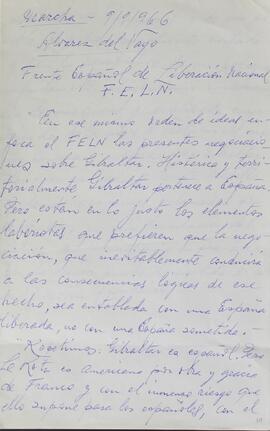 Marcha - 9/9/966
Alvarez del Vayo
Frente Español de Liberación Nacional
F. E. L. N.
"En ese mismo orden de ideas en-
foca el FELN las presentes negociacio-
nes sobre Gibraltar. Histórica y terri-
torialmente Gibraltar pertenece a España.
Pero están en lo justo los elementos
laboristas que prefieren que la nego-
ciación, que inevitablemente conducirá
a las consecuencias lógicas de ese
hecho, sea entablada con una España
liberada, no con una España sometida. -
"Repetimos: Gibraltar es español. Pero
La Rota es americana por obra y gracia
de Franco y con el inmenso riesgo que
ello supone para los españoles, con el